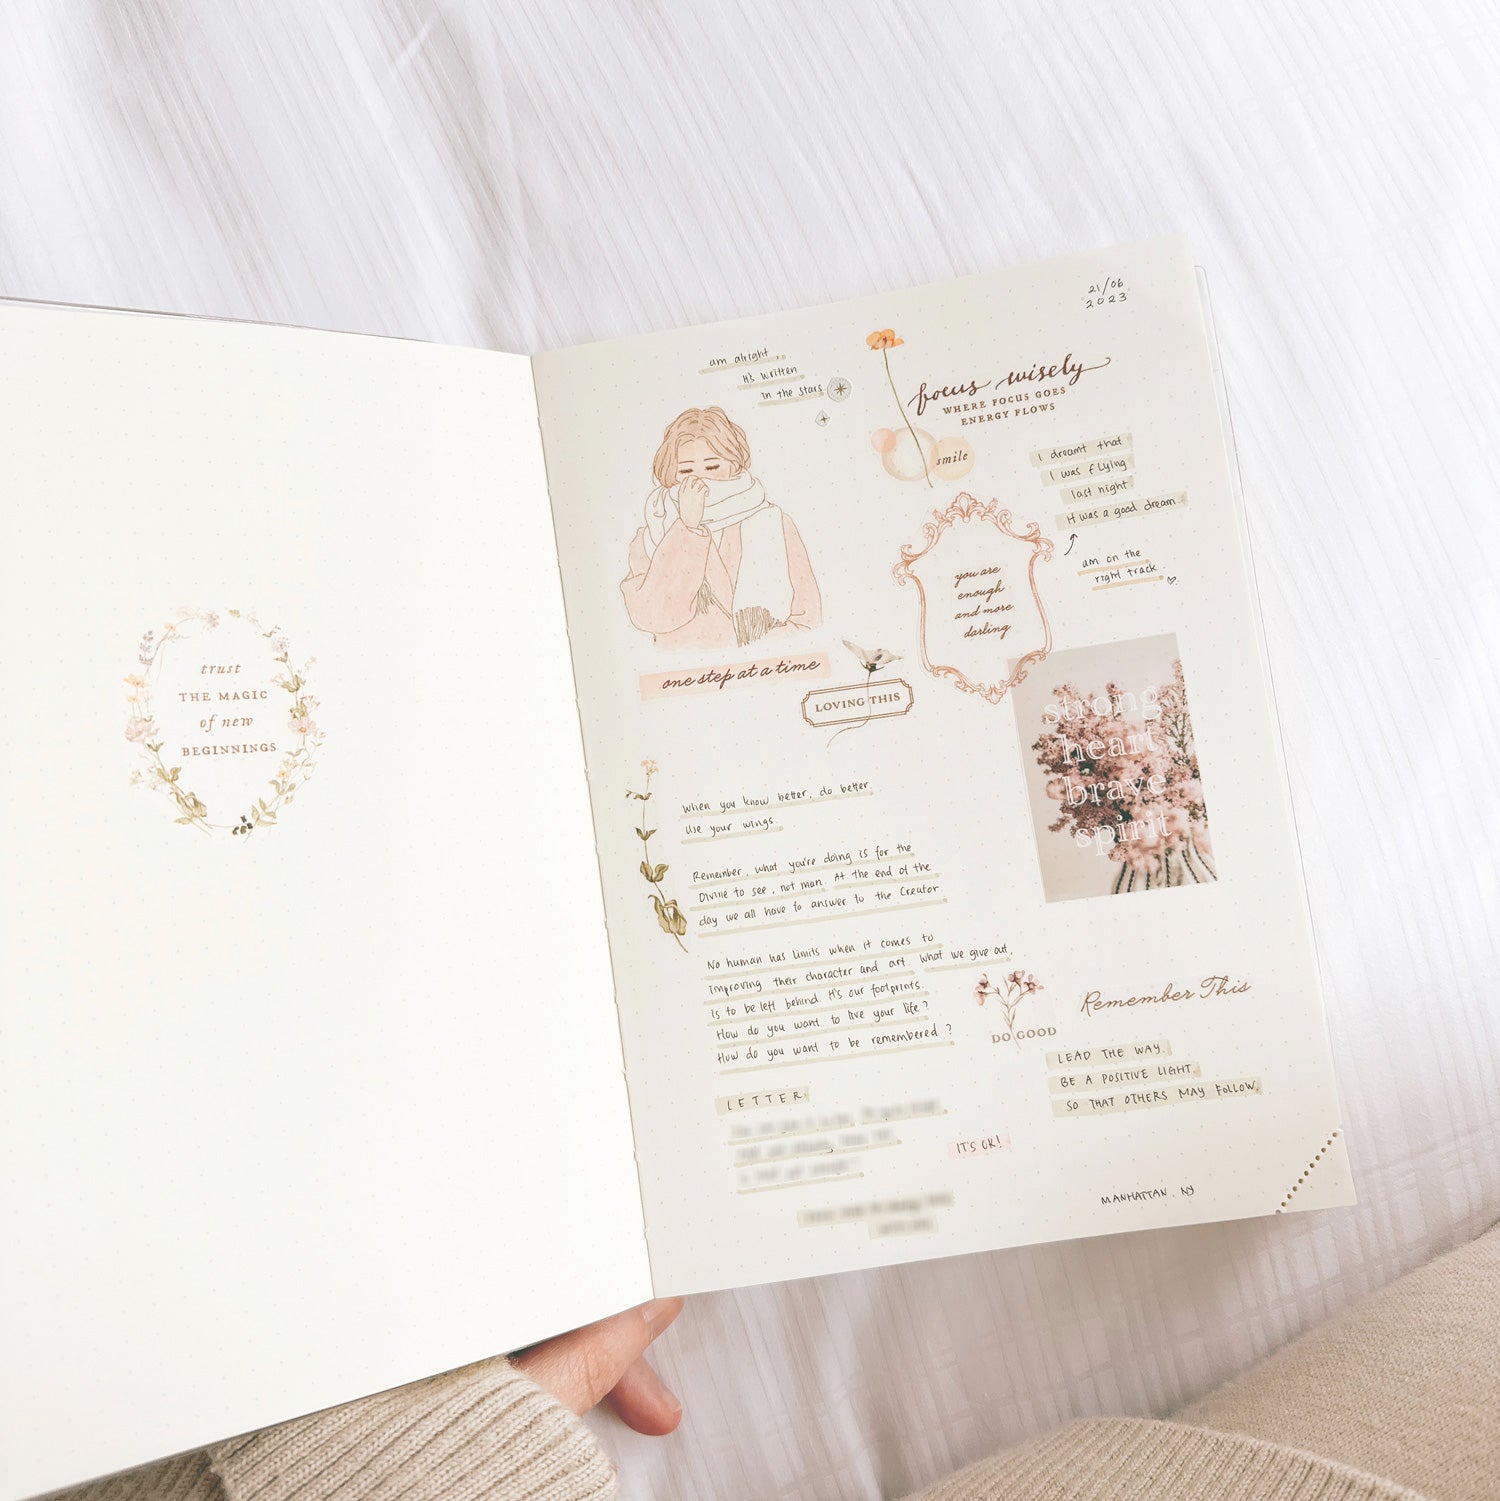 trust
THE MAGIC
of new
BEGINNINGS
21/06
2023
am alright,
it's written
in the stars
focus wisely
WHERE FOCUS GOES
ENERGY FLOWS
smile
I dreamt that
I was flying
last night.
It was a good dream.
am on the
right track.
you are
enough
and more
darling
one step at a time
LOVING THIS
strong
heart
brave
spirit
When you know better, do better.
Use your wings.
Remember, what you're doing is for the
Divine to see, not man. At the end of the
day we all have to answer to the Creator.
No human has limits when it comes to
improving their character and art. What we give out,
is to be left behind. It's our footprints.
How do you want to live your life?
How do you want to be remembered?
DO GOOD
Remember This
LEAD THE WAY.
BE A POSITIVE LIGHT.
SO THAT OTHERS MAY FOLLOW.
LETTER
IT'S OK!
MANHATTAN, NY